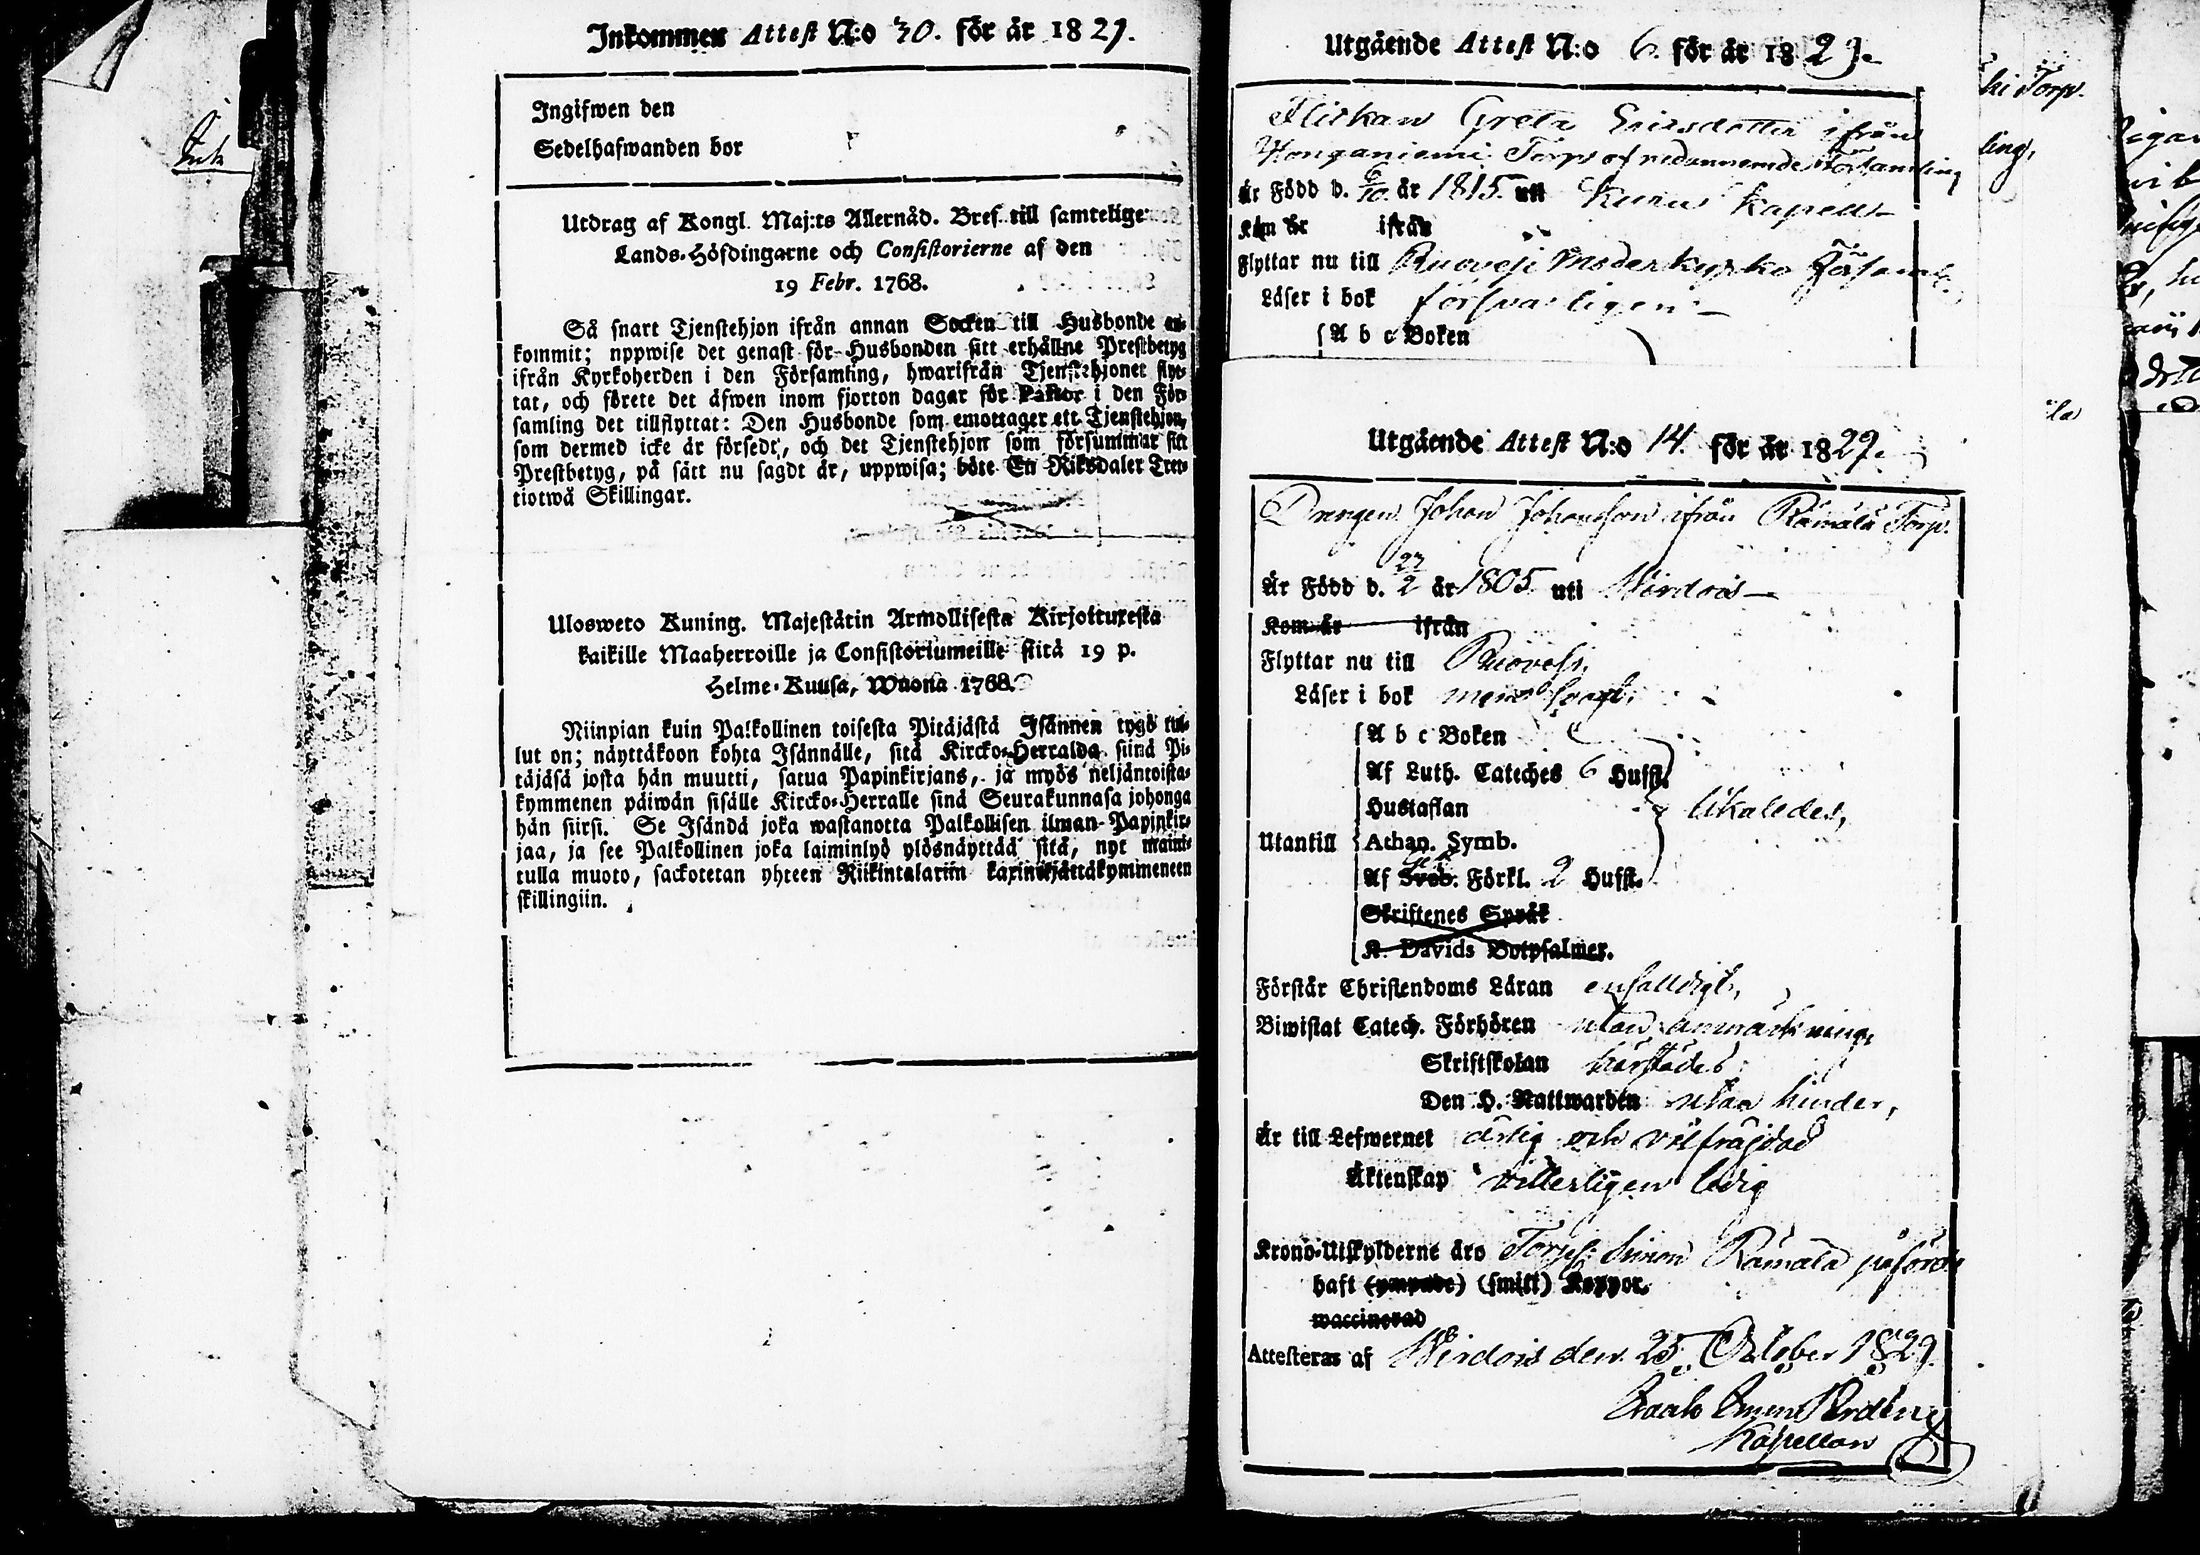 Inkommen Attest N:o 30. för år 1829.
Ingifwen den
Sedelhafwanden bor
Utdrag af Kongl. Maj:ts Allernåd. Bref till samtelige
Lands-Höfdingarne och Consistorierne af den
19 Febr. 1768.
Så snart Tjenstehjon ifrån annan Socken till Husbonde an-
kommit; nppwise det genast för Husbonden sitt erhållne Prestbetyg
ifrån Kyrkoherden i den Församling, hwarifrån Tjenstehjonet flyt-
tat, och förete det äfwen inom fjorton dagar för Pastor i den För-
samling det tillflyttat: Den Husbonde som emottager ett Tjenstehjon,
som dermed icke är försedt, och det Tjenstehjon som försummar sitt
Prestbetyg, på sätt nu sagdt är, uppwisa; böte En Riksdaler Tret-
tiotwå Skillingar.
Ulosweto Kuning. Majestätin Armollisesta Kirjoituxesta
kaikille Maaherroille ja Consistoriumeille siitä 19 p.
Helme-Kuusa, Wuona 1768.
Niinpian kuin Palkollinen toisesta Pitäjästä Isännen tygö tul-
lut on; näyttäkoon kohta Isännälle, sitä Kircko-Herralda siinä Pi-
täjäsä josta hän muutti, satua Papinkirjans, ja myös neljäntoista-
kymmenen päiwän sisälle Kircko-Herralle sinä Seurakunnasa johonga
hän siirsi. Se Isändä joka wastanotta Palkollisen ilman Papinkir-
jaa, ja see Palkollinen joka laiminlyö ylösnäyttää sitä, nyt maini-
tulla muoto, sackotetan yhteen Riikintalariin kaxineljättäkymmeneen
skillingiin.
Utgående Attest N:o 6. för år 1829.
Flickan Greta Ericsdotter ifrån
Honganiemi Torp of nedannemde Församling
Är Född d. 6/10 år 1815. uti Kuru Kapell
Kom år ifrån
Flyttar nu till Ruovesi Moderkyrko Församl.
Läser i bok försvarligen
A b c Boken
Utgående Attest N:o 14. för år 1829.
Drengen Johan Johansson ifrån Rämälä Torp.
Är Född d. 27/2 år 1805. uti Wirdois
Kom år ifrån
Flyttar nu till Ruovesi,
Läser i bok
A b c Boken
Af Luth. Cateches 6 Hufst.
Hustaflan likaledes,
Utantill Athan. Symb.
Af Förkl. 2 Hufst.
Skriftenes Språk
K. Davids Botpsalmer.
Förstår Christendoms Läran enfalldigt,
Biwistat Catech. Förhören utan anmärkning,
Skriftskolan härstädes
Den H. Nattwarden utan hinder,
Är till Lefwernet ärlig och välfräjdad
Äktenskap vitterligen ledig
Krono-Utskylderne äro Torp: Simon Rämälä påförde
haft (ympade) (smitt) Koppor.
waccinerad
Attesteras af Wirdois den 25 October 1829.
Kapellan